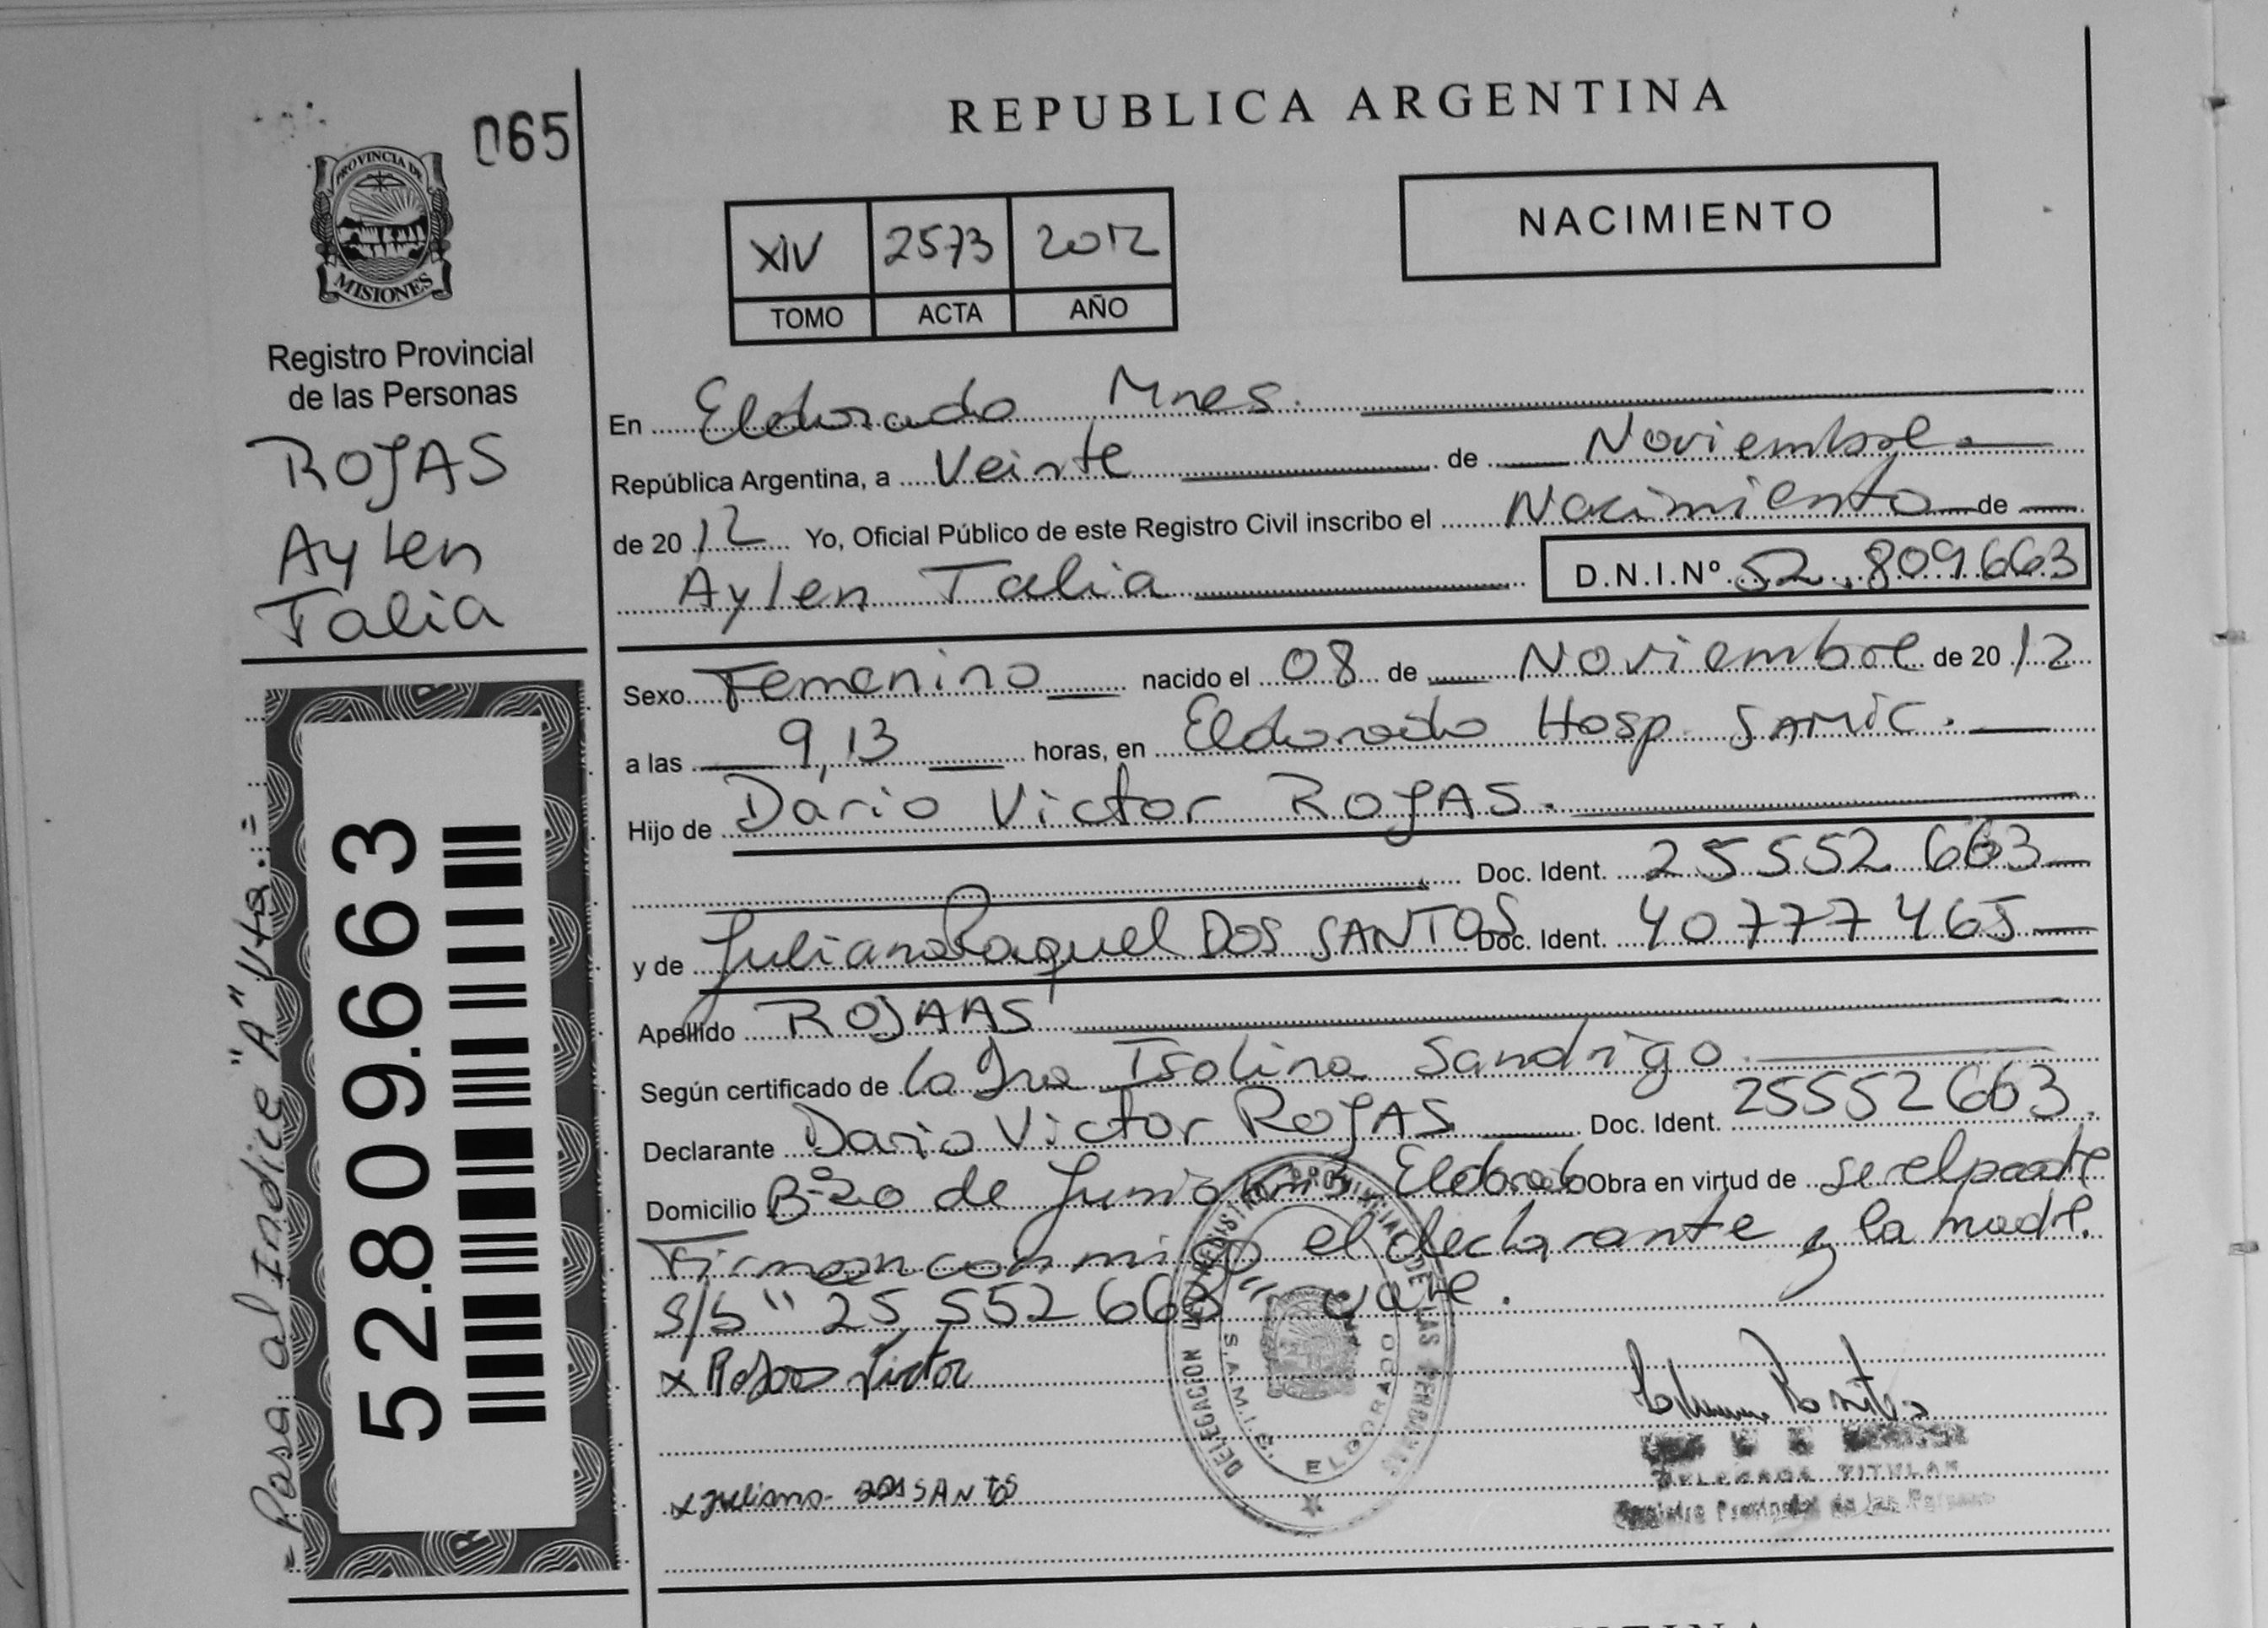 065
PROVINCIA DE
MISIONES
Registro Provincial
de las Personas
ROJAS
Aylen
Talia
52.809.663
= Pasa al Indice "A" Vto. =
REPUBLICA ARGENTINA
NACIMIENTO
XIV 2573 2012
TOMO ACTA AÑO
En Eldorado Mnes.
República Argentina, a Veinte de Noviembre
de 2012 Yo, Oficial Público de este Registro Civil inscribo el Nacimiento de
Aylen Talia D.N.I.Nº 52.809663
Sexo Femenino nacido el 08 de Noviembre de 2012
a las 9,13 horas, en Eldorado Hosp. SAMIC.
Hijo de Dario Victor ROJAS.
Doc. Ident. 25552663
y de Juliana Raquel DOS SANTOS Doc. Ident. 40777465
Apellido ROJAAS
Según certificado de la Dra Isolina Sandrigo
Declarante Dario Victor ROJAS Doc. Ident. 25552663
Domicilio Bº 20 de Junio Eldorado Obra en virtud de ser el padre
Firman conmigo el declarante y la madre.
S/b " 25.552663" vale.
x Rojas Victor
x Juliana DOS SANTOS
DELEGACION REGISTRO PROVINCIAL DE LAS PERSONAS
S.A.M.I.C. ELDORADO
DELEGADA TITULAR
Registro Provincial de las Personas